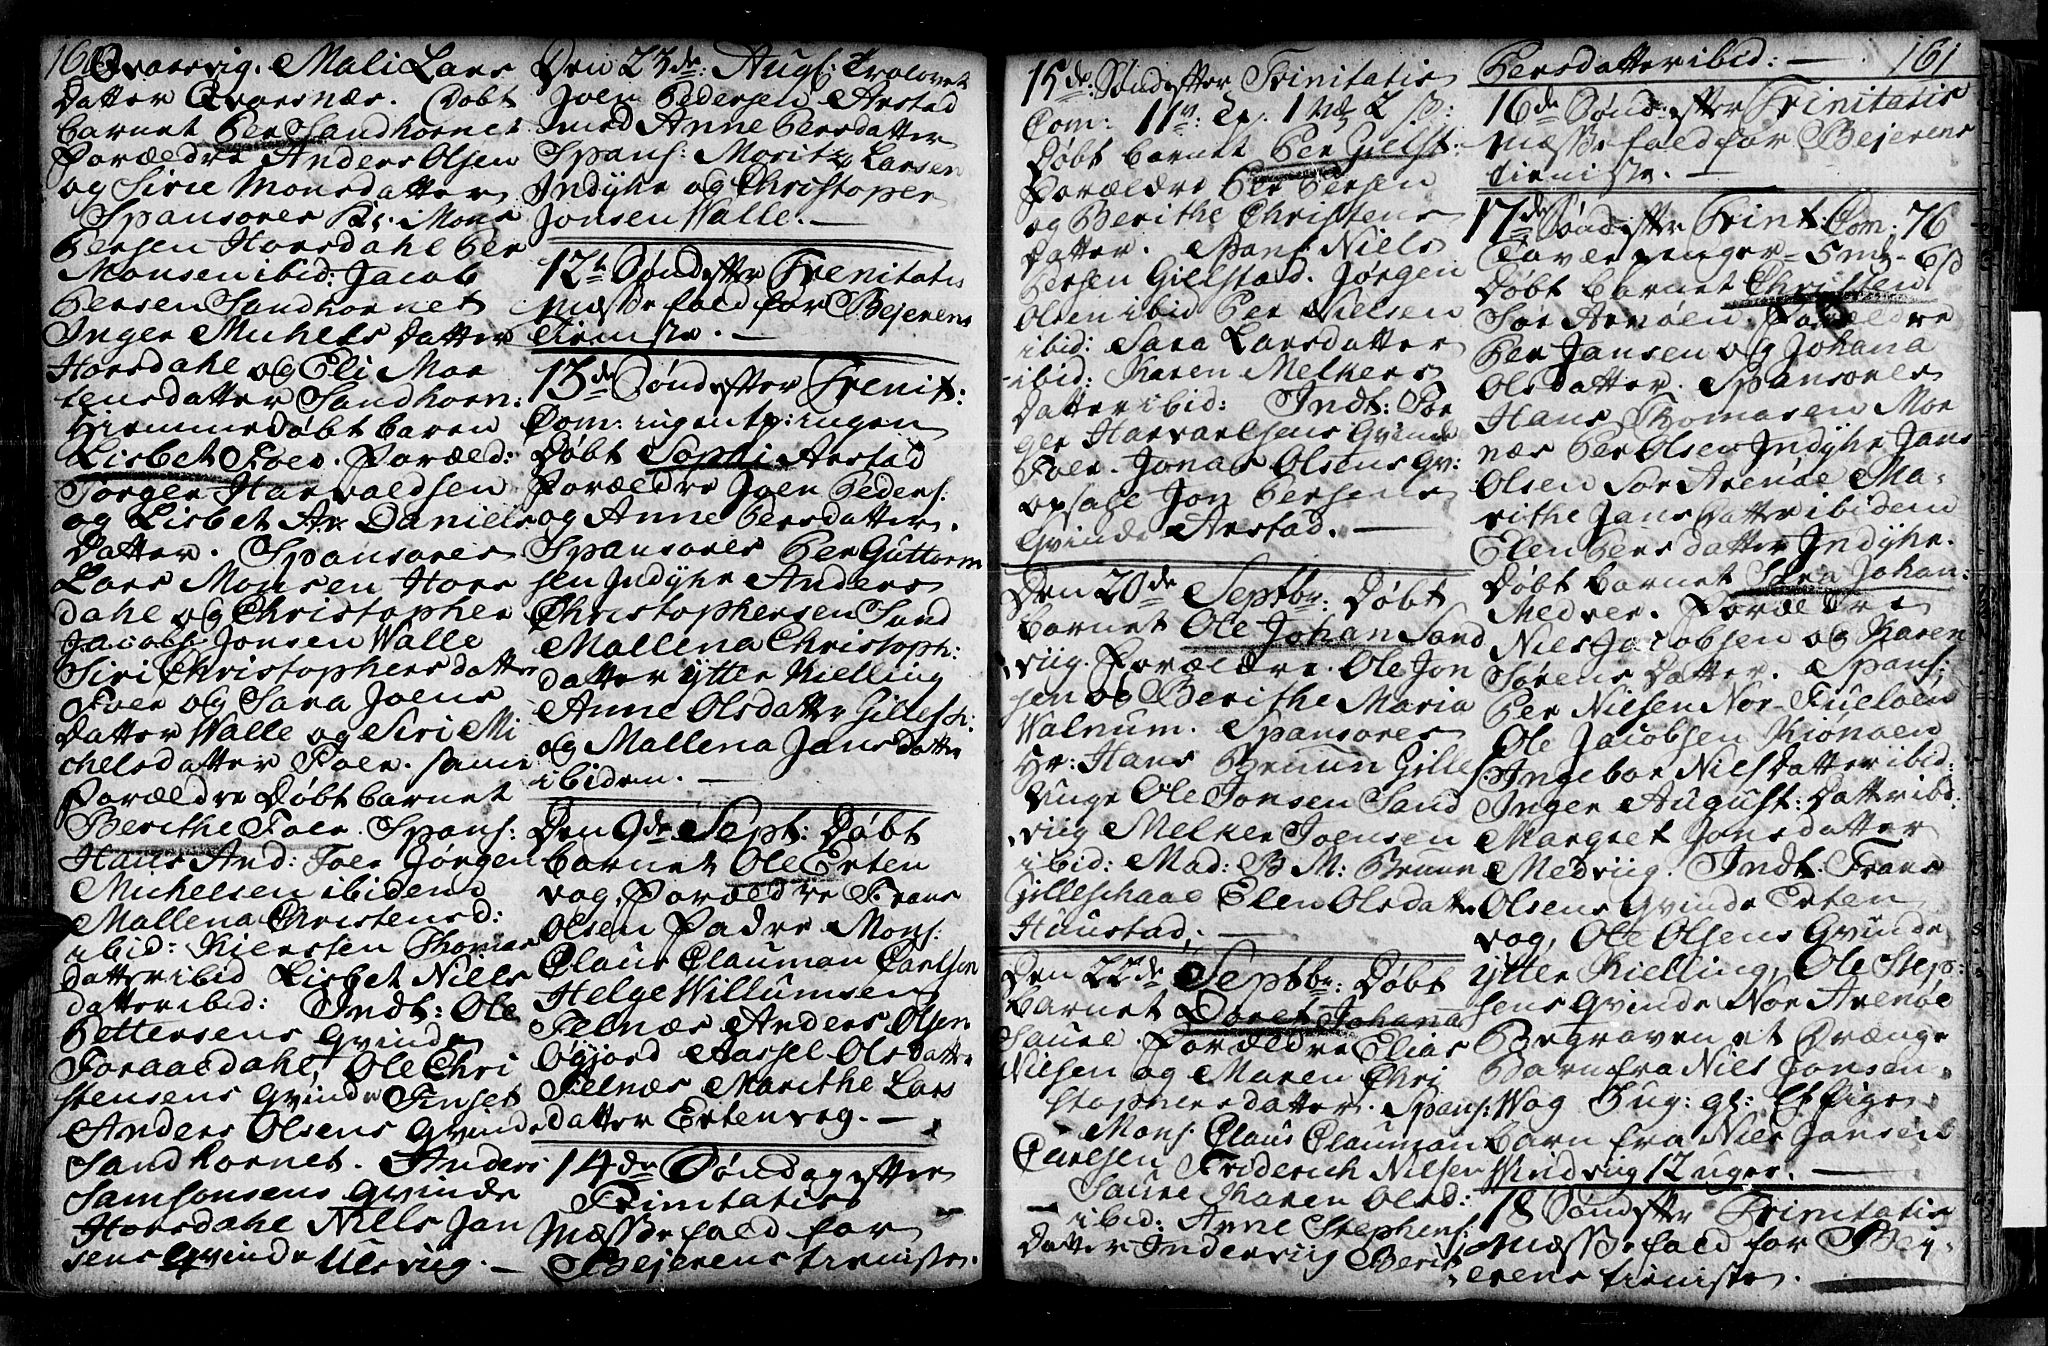 160 Qvarsvig. Mali Lars
datter Qvarsnæs. Døbt
barnet Per Sandhornet
Forældre Anders Olsen
og Sirie Monsdatter
Spansores Hr: Mons
Persen Horsdahl Per
Monsen ibid: Jacob
Persen Sandhornet
Inger Michels datter
Horsdahl og Eli Mor
tensdatter Sandhorn:
Hiemmedøbt baren
Lisbet Foer. Foræld:
Jørgen Harvaldsen
og Lisbet An: Daniels
datter. Spansores
Lars Monsen Hors
dahl og Christopher
Jacobs: Jonsen Walle
Siri Christophersdatter
Foer og Sara Joens
datter Walle og Siri Mi
chelsdatter Foer. samme
Forældre Døbt barnet
Berithe Foer. Spans:
Hans And: Foer Jørgen
Michelsen ibidem
Mallena Christensd:
ibid: Kierssen Thomas
datter ibid Lisbet Niels
datter ibid: Indt: Ole
Pettersens Qvinde
Foraasdahl, Ole Chri
stensens Qvinde Finset
Anders Olsens Qvinde
Sandhornet. Anders
Samsonsens Qvinde
Horsdahl Niels Jan
sens Qvinde Ulsviig. —
Den 23de: Augs: Trolovet
Joen Pedersen Arstad
med Anne Persdatter
Spans: Moritz Larsen
Indyhr og Christoper
Jonsen Walle. —
12te Sønd efter Trenitatis
Mæssefald for Bejerens
tieniste. —
13de Sønd efter Trenit:
Com: ingen tp: ingen
Døbt Sophi Arstad
Forældre Joen Peders:
og Anne Persdatter.
Spansores Per Guttorm
sen Indyhr Anders
Christophersen Sand
Mallena Christoph:
datter ytter Kielling
Anne Olsdatter Gillesch:
og Mallena Jansdatter
ibidem. —
Den 9de Sept: Døbt
barnet Ole Erten
vog, Forældre Frans
Olsen Padre Mons:
Claus Clauman Carlson
Helge Willumsen
Felnæs Anders Olsen
Ogjord Aassel Olsdatter
Felnæs Marithe Lars
datter Ertenvog. —
14de Søndag efter
Trinitatis
Mæssefald for
Bejerens tieniste.
15de Sønd efter Trinitatis
Com: 11. Tp. 1 2 ß:
Døbt barnet Per Gielst:
Forældre Per Persen
og Berithe Christens
datter. Spans Niels
Persen Gillstad. Jørgen
Olsen ibid Per Nielsen
ibid: Sara Larsdatter
ibid: Karen Melkers
datter ibid: Indt: Jør
gen Harvaelsens Qvinde
Foer. Jonas Olsens Qv:
opsall Jon Persens
Qvinde Arstad. —
Den 20de Septbr: Døbt
barnet Ole Johan Sand
viig. Forældre. Ole Jon
sen og Berithe Maria
Walnum. Spansores
Hr: Hans Bruun Gilles
Unge Ole Jonsen Sand
viig Melker Joensen
ibid: Mad: B M: Bruun
Gilleschaae Elen Olsdatter
Huustad, —
Den 22de Septbr: Døbt
barnet Doret Johana
Saure. Forældre Elias
Nielsen og Maren Chri
stophersdatter. Spans:
Mons: Claus Clauman
Carlsen Friderich Nilsen
Saure Karen Olsd:
ibid: Anne Stephens:
datter Inderviig Berit
Persdatter ibid: — 161
16de Sønd: efter Trinitatis
Mæssefald for Bejerens
tieniste. —
17de Sønd efter Trint: Com: 76
Tavle penger = 5 mk =
Døbt barnet Christen
Sør Arnøen. Forældre
Per Jansen og Johana
Olsdatter. Spansores
Hans Thomasen Mor
næs Per Olsen Indyhr Jans
Olsen Sør Arenøe Ma-
rithe Jans datter ibidem
Elen Pers datter Indyhr.
Døbt barnet Sara Johan:
Medver. Forældre
Niels Jacobsen og Karen
Sørens datter. Spans:
Per Nielsen Nor-Fugløen
Ole Jacobsen Kiønøen
Ingebor Niels datter ibid:
Inger August: Dattr ibd:
Margret Jonsdatter
Medviig. Indt: Frans
Olsens Qvinde Erten
vog, Ole Olsens Qvinde
ytter Kielling, Ole Step:
sens Qvinde Nor Arenøe
Begraven et Drænge
Barn fra Niels Jonsen
Wog
barn fra Niels Jansen
Vindviig 12 uger. —
18 Sønd efter Trinitatis
Mæssefald for Bej-
erens tieniste.